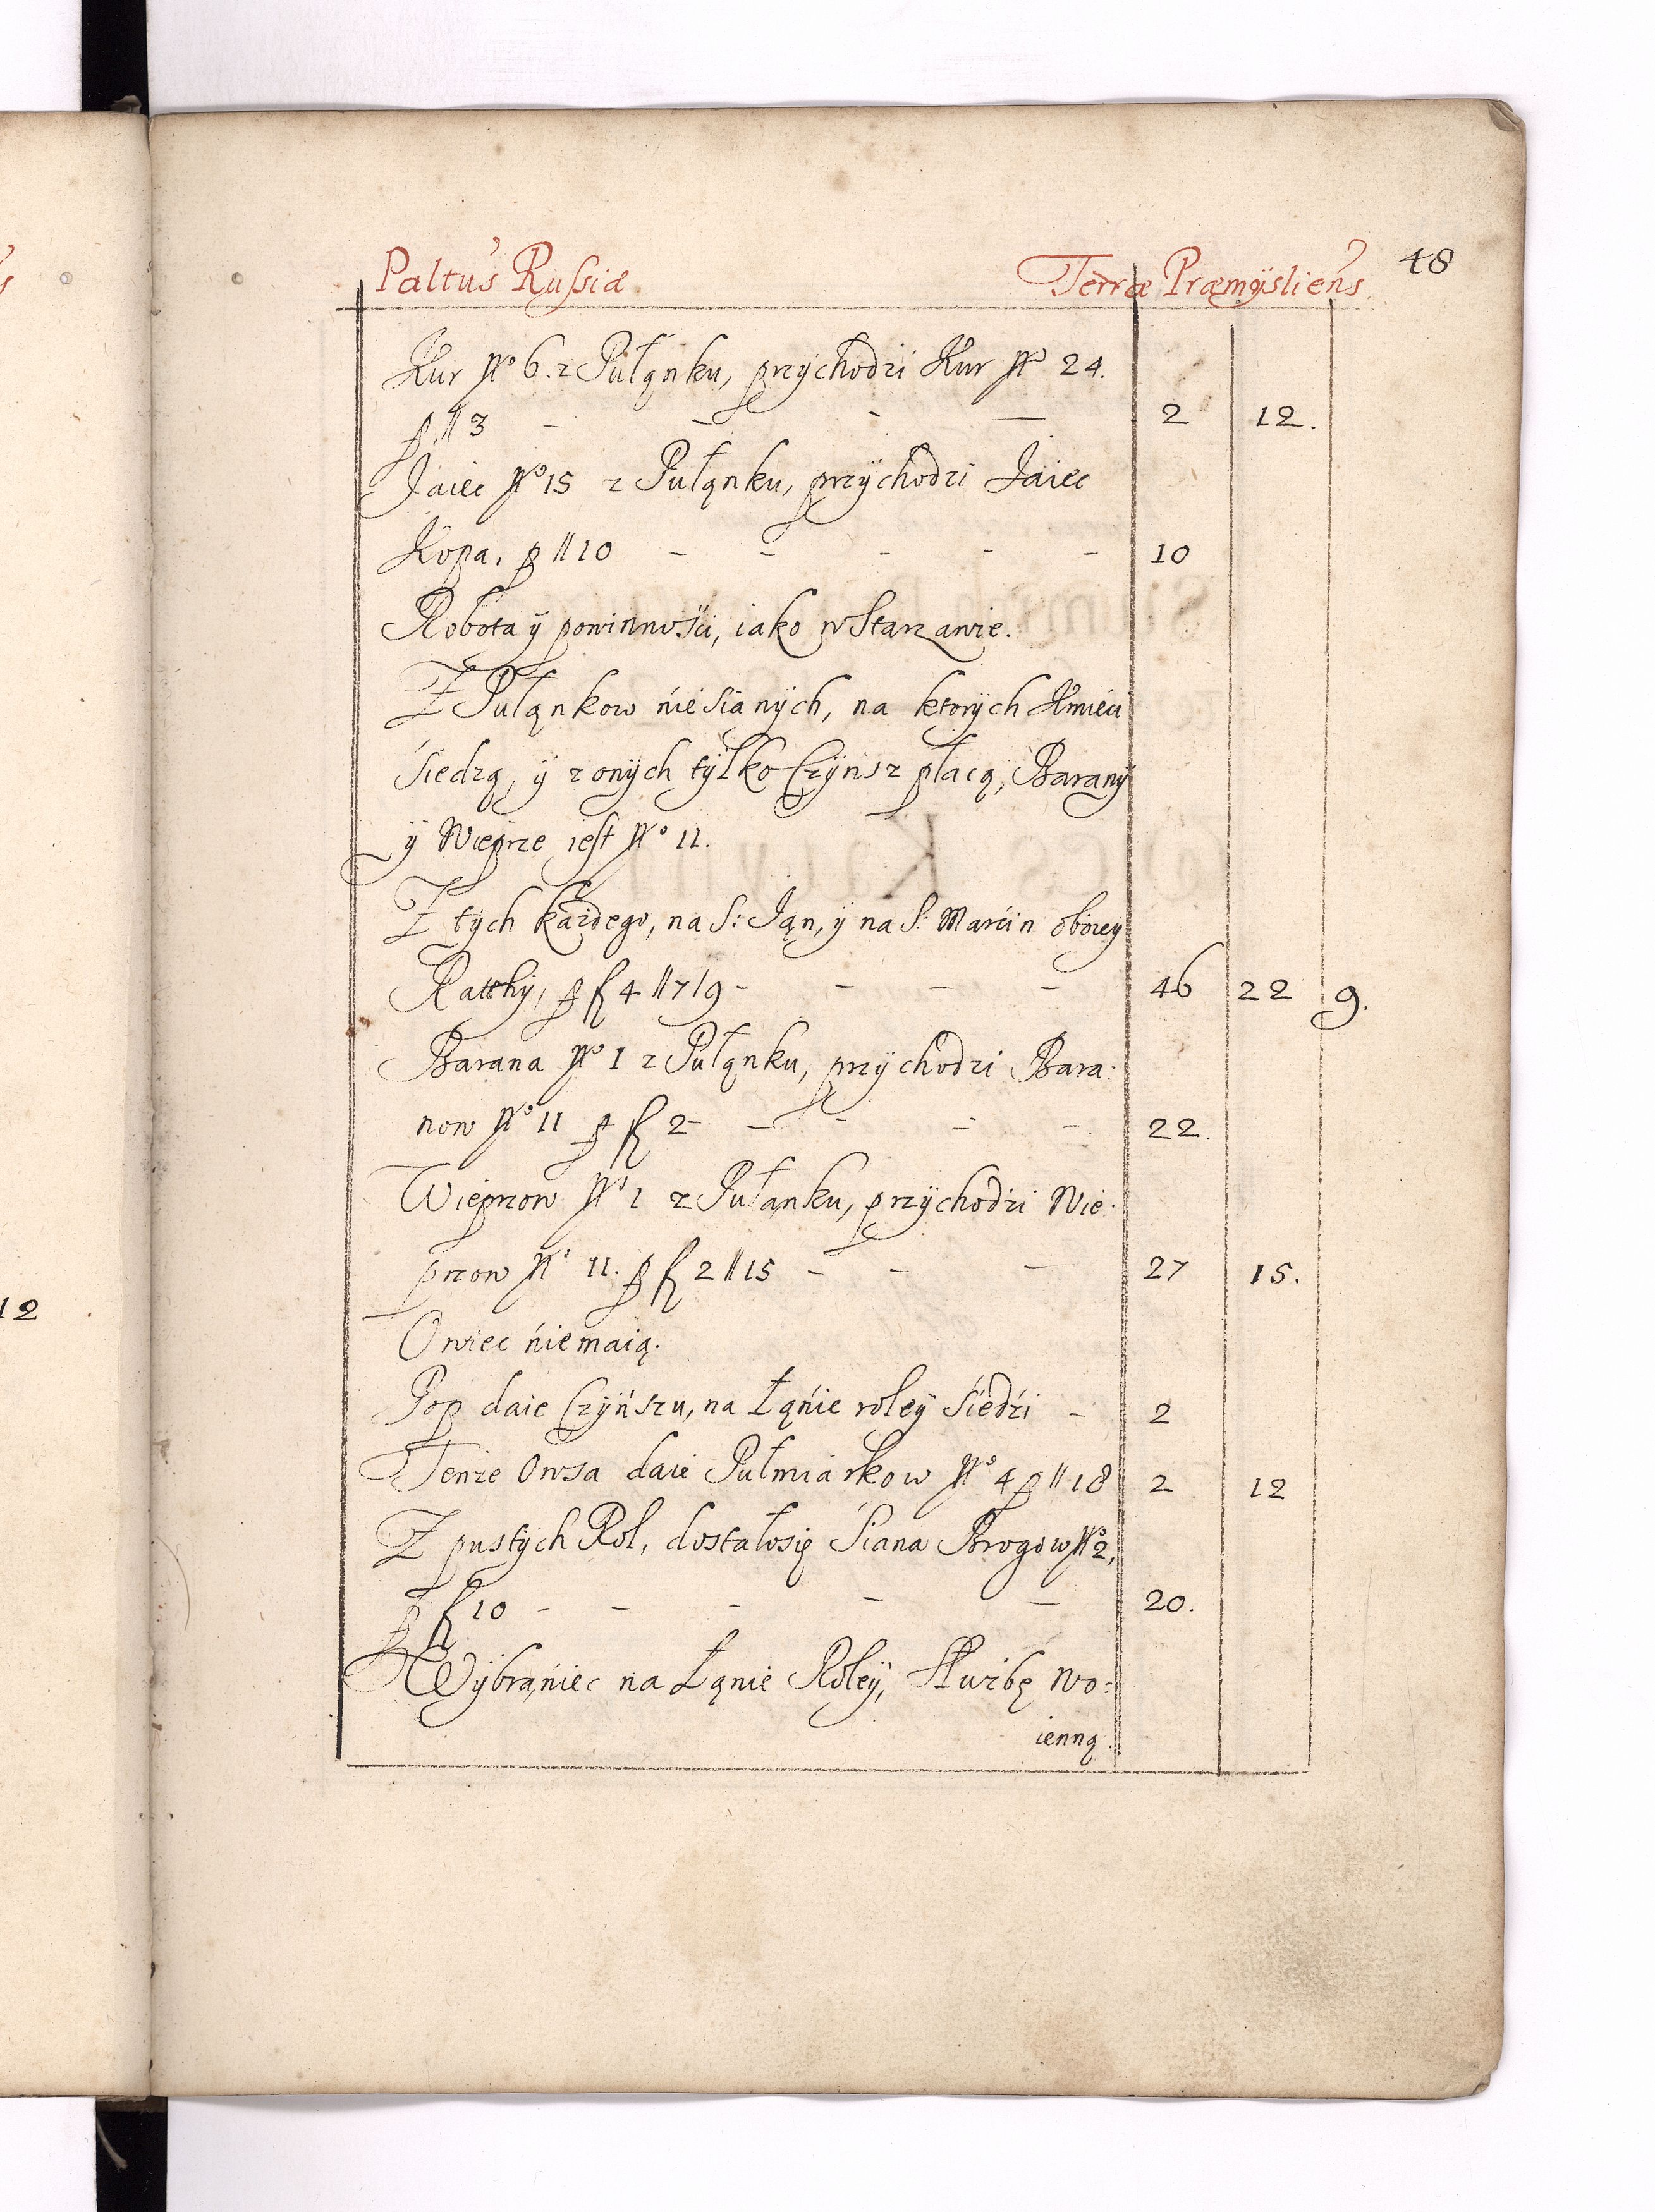 Paltus Russiæ Terræ Præmÿsliens 48
Kur No 6. z Pułąnku, przÿchodzi Kur No 24.
p // 3 - - - - 2 12.
Jaiec No 15 z Pułąnku, przÿchodzi Jaiec
Kopa. p // 10 - - - - - 10
Robota ÿ powinnośći, iako w Starzawie.
Z Pułąnkow ńiesianÿch, na ktorÿch Kmieci
śiedzą, ÿ z onÿch tÿlko Czÿnsz płacą, Baranÿ
ÿ Wieprze iest No 11.
Z tÿch każdego, na S: Ján, ÿ na S: Marćin oboieÿ
Ratthÿ, p f 4 // 7/9 - - - - 46 22 9.
Barana No 1 z Pułąnku, przÿchodzi Bara:
now No 11 p f 2 - - - - - 22.
Wieprzow No 1 z Pułanku, przÿchodzi Wie:
przow No 11. p f 2 // 15 - - - 27 15.
Owiec ńiemaią.
Pop daie Czÿńszu, na Łąńie roleÿ śiedźi - 2
Tenże Owsa daie Pułmiarkow No 4 p // 18 2 12
Z pustÿch Rol, dostałosię Śiana Brogow No 2,
p f 10 - - - - - 20.
Wÿbrąńiec na Łąnie Roleÿ, Służbę wo:
ienną.
12 .